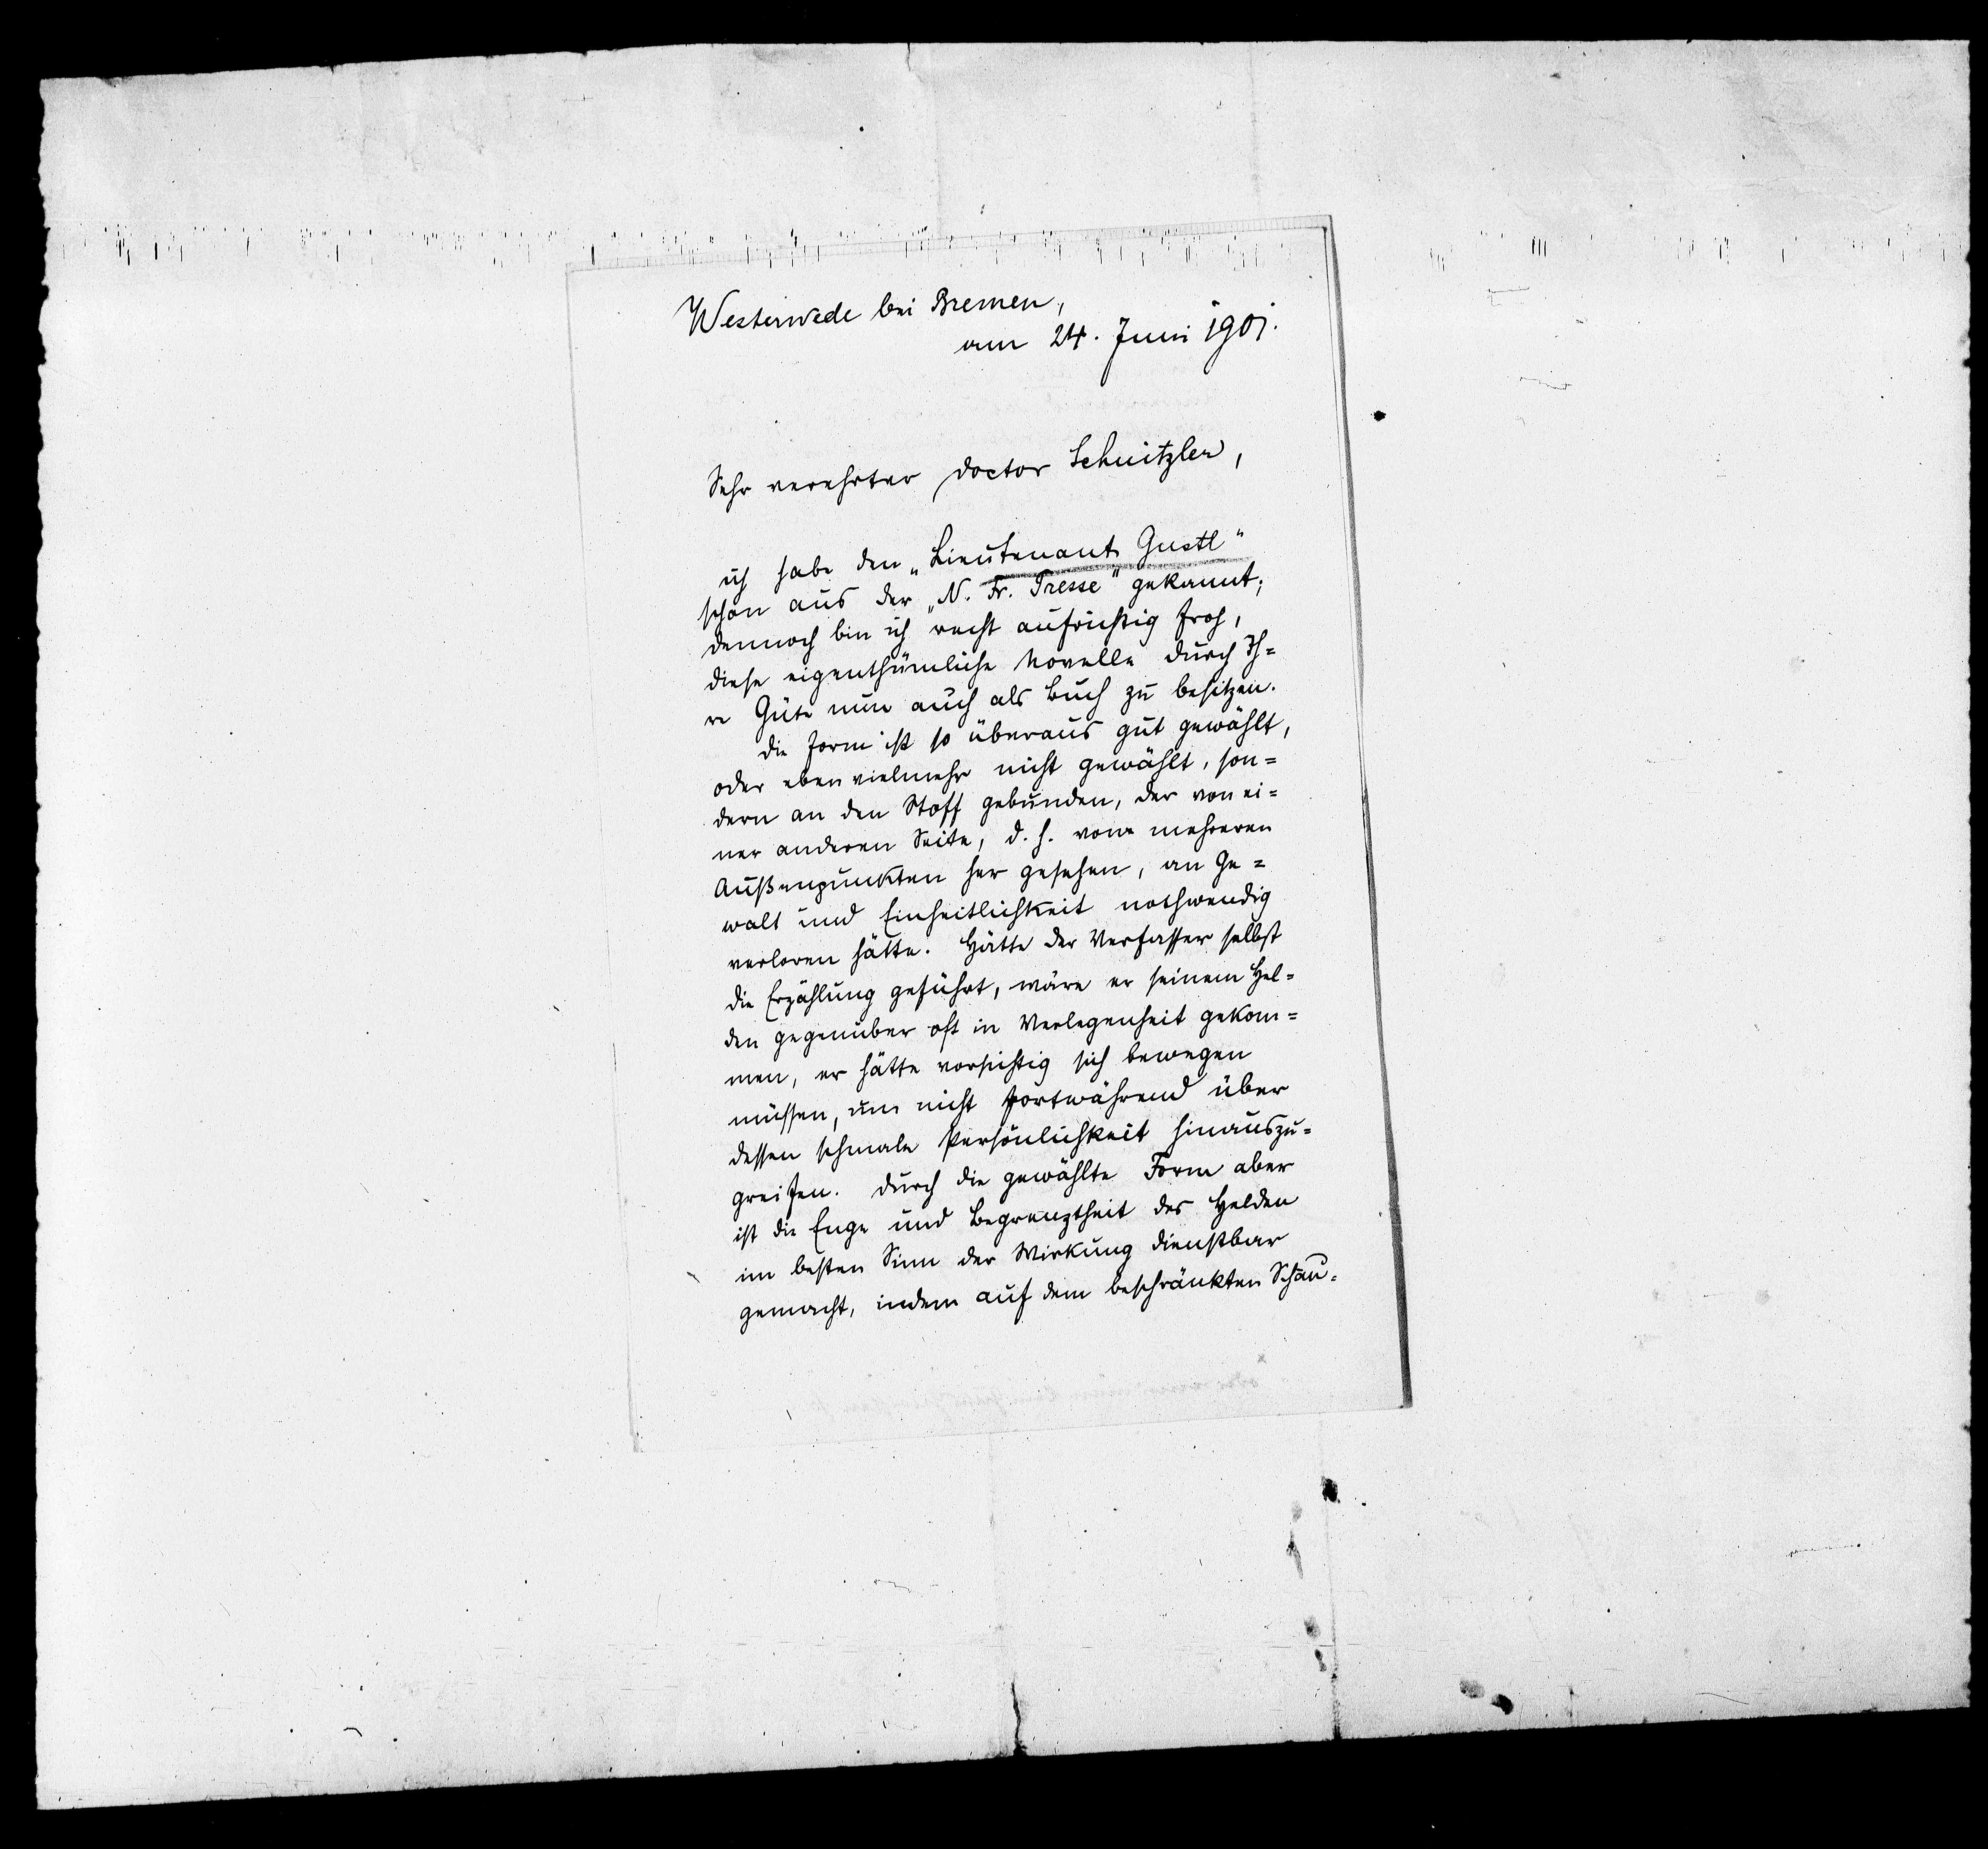 Westerwede bei Bremen,
am 24. Juni 1901.
Sehr verehrter Doctor Schnitzler,
ich habe den „Lieutenant Gustl"
schon aus der „N. Fr. Presse" gekannt;
dennoch bin ich recht aufrichtig froh,
diese eigenthümliche Novelle durch Ih=
re Güte nun auch als Buch zu besitzen.
Die Form ist so überaus gut gewählt,
oder eben vielmehr nicht gewählt, son=
dern an den Stoff gebunden, der von ei=
ner anderen Seite, d. h. von mehreren
Außenpunkten her gesehen, an Ge=
walt und Einheitlichkeit nothwendig
verloren hätte. Hätte der Verfasser selbst
die Erzählung geführt, wäre er seinem Hel=
den gegenüber oft in Verlegenheit gekom=
men, er hätte vorsichtig sich bewegen
müssen, um nicht fortwährend über
dessen schmale Persönlichkeit hinauszu=
greifen. Durch die gewählte Form aber
ist die Enge und Begrenztheit des Helden
im besten Sinn der Wirkung dienstbar
gemacht, indem auf dem beschränkten Schau=